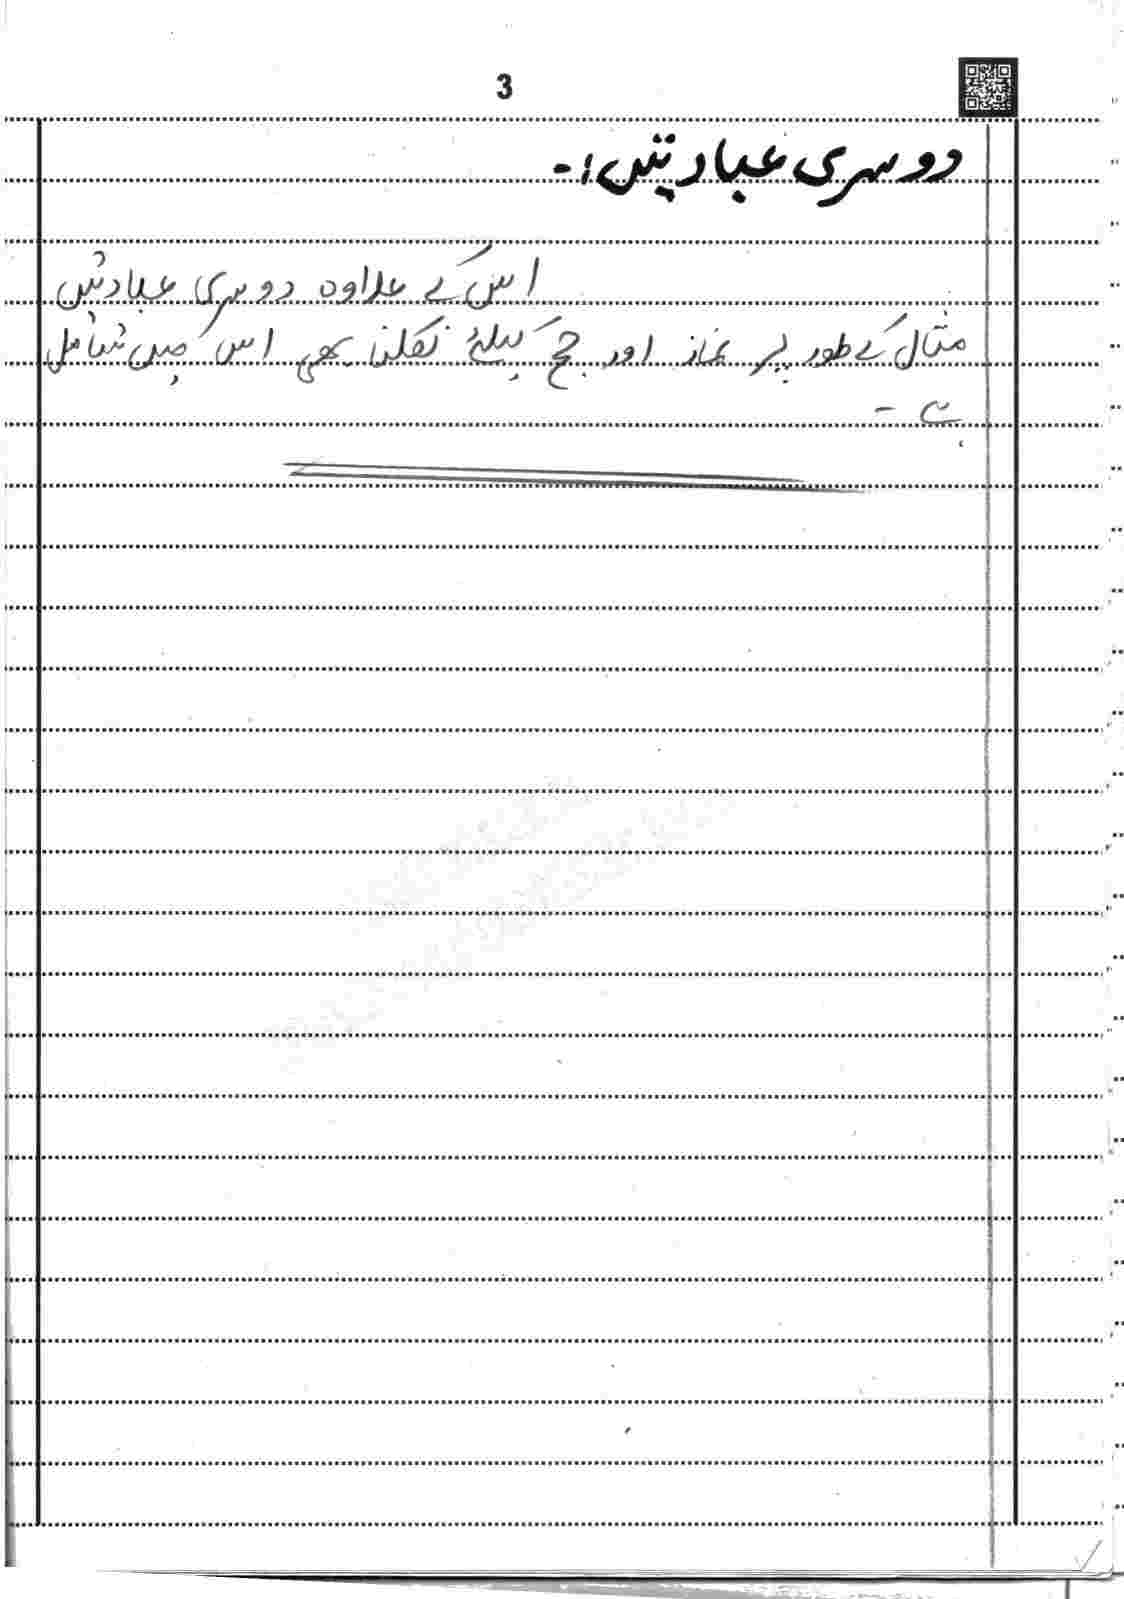 3
دوسری عبادتیں:-
اس کے علاوہ دوسری عبادتیں
مثال کے طور پر نماز اور حج کیلئے نکلنا بھی اس میں شامل
ہے -